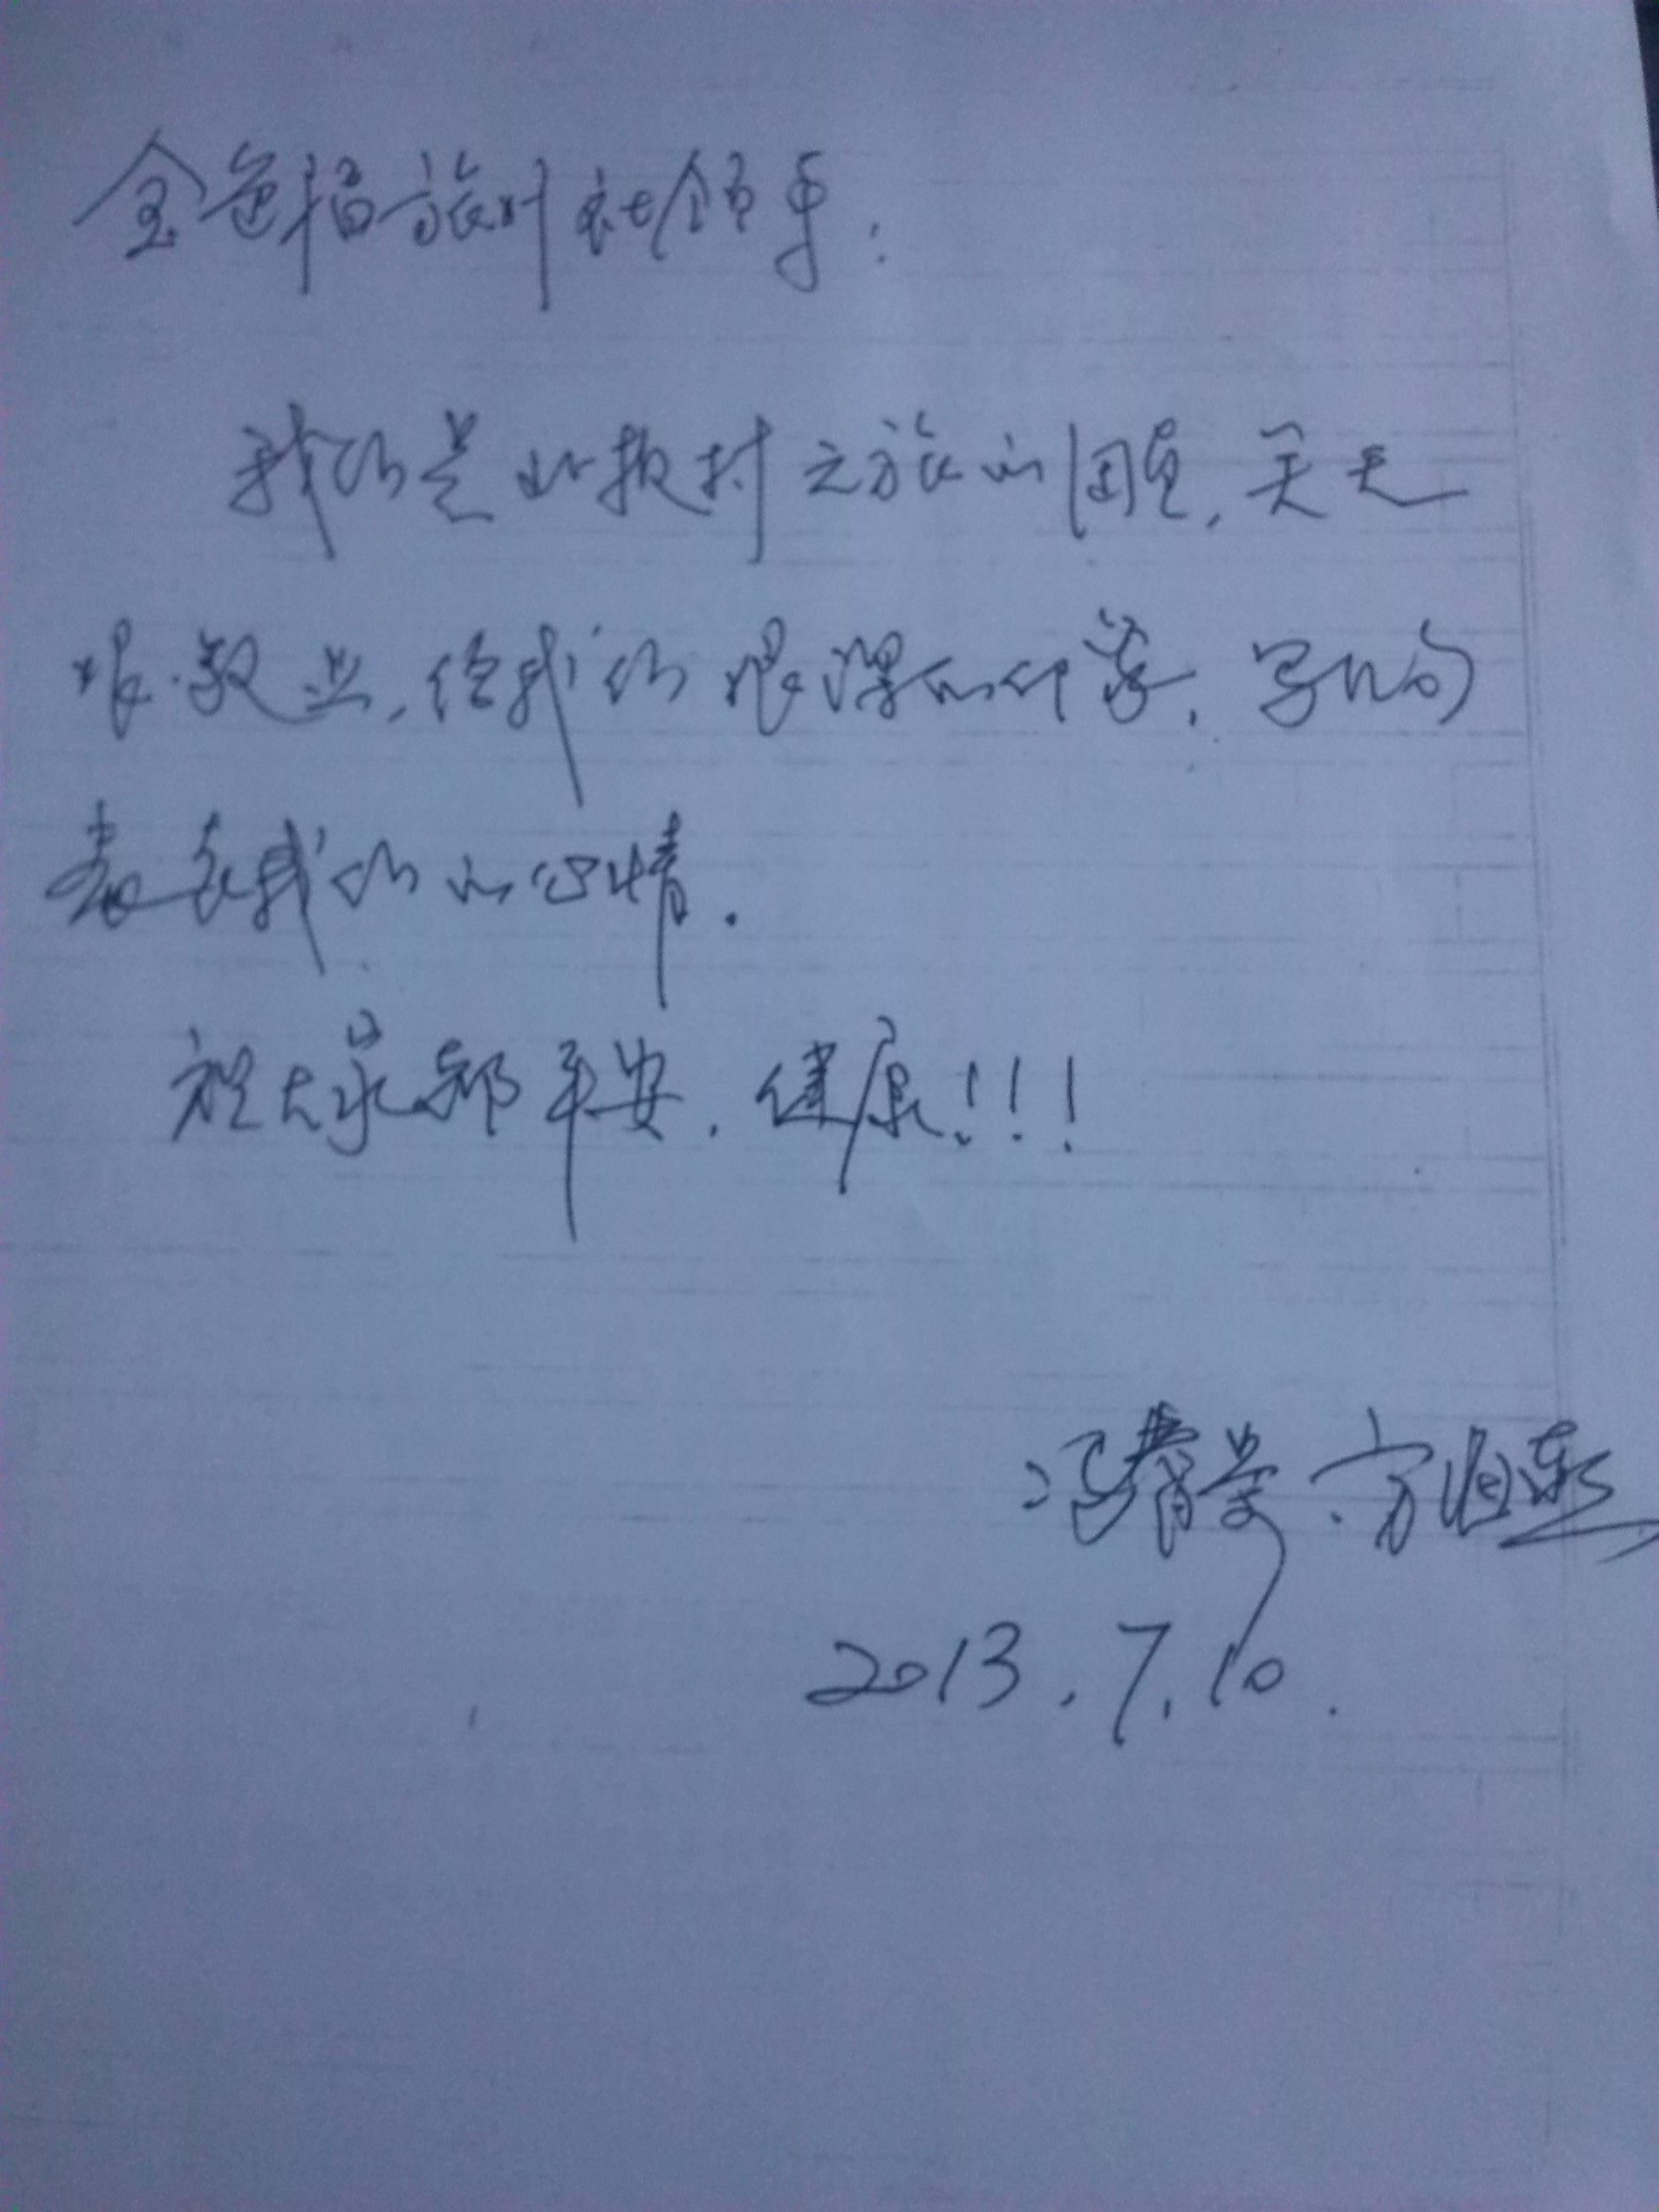 金色福旅行社领导:
我们是北极村之旅的团员,关天
很敬业,给我们很深的印象,写几句
表表我们的心情.
祝大家都平安.健康!!!
冯春荣.方
2013.7.10.